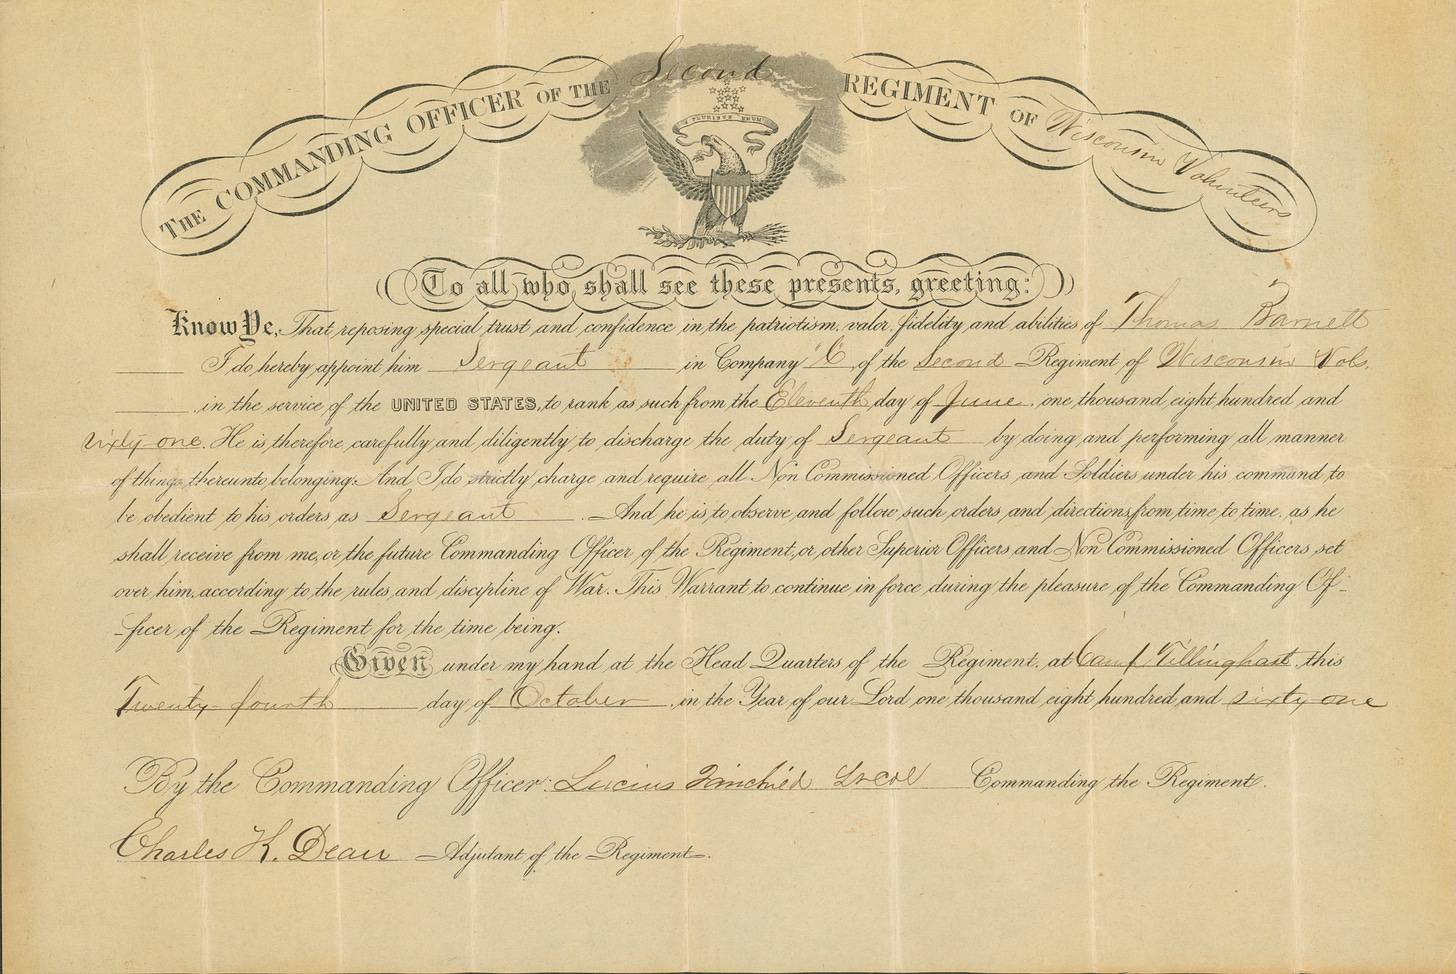 THE COMMANDING OFFICER OF THE Second REGIMENT OF Wisconsin Volunteers
E PLURIBUS UNUM
To all who shall see these presents, greeting:
Know Ye, That reposing special trust and confidence in the patriotism, valor, fidelity and abilities of Thomas Barnett
I do hereby appoint him Sergeant in Company "C", of the Second Regiment of Wisconsin Vols.
in the service of the UNITED STATES, to rank as such from the Eleventh day of June, one thousand eight hundred and
sixty one. He is therefore carefully and diligently to discharge the duty of Sergeant by doing and performing all manner
of things thereunto belonging. And I do strictly charge and require all Non Commissioned Officers and Soldiers under his command to
be obedient to his orders as Sergeant. And he is to observe and follow such orders and directions, from time to time, as he
shall receive from me, or the future Commanding Officer of the Regiment, or other Superior Officers and Non Commissioned Officers, set
over him, according to the rules and discipline of War. This Warrant to continue in force during the pleasure of the Commanding Of-
ficer of the Regiment for the time being.
Given under my hand at the Head Quarters of the Regiment, at Camp Tillinghast, this
Twenty-fourth day of October, in the Year of our Lord one thousand eight hundred and sixty one
By the Commanding Officer: Lucius Fairchild Lt Col Commanding the Regiment.
Charles K. Dean Adjutant of the Regiment.